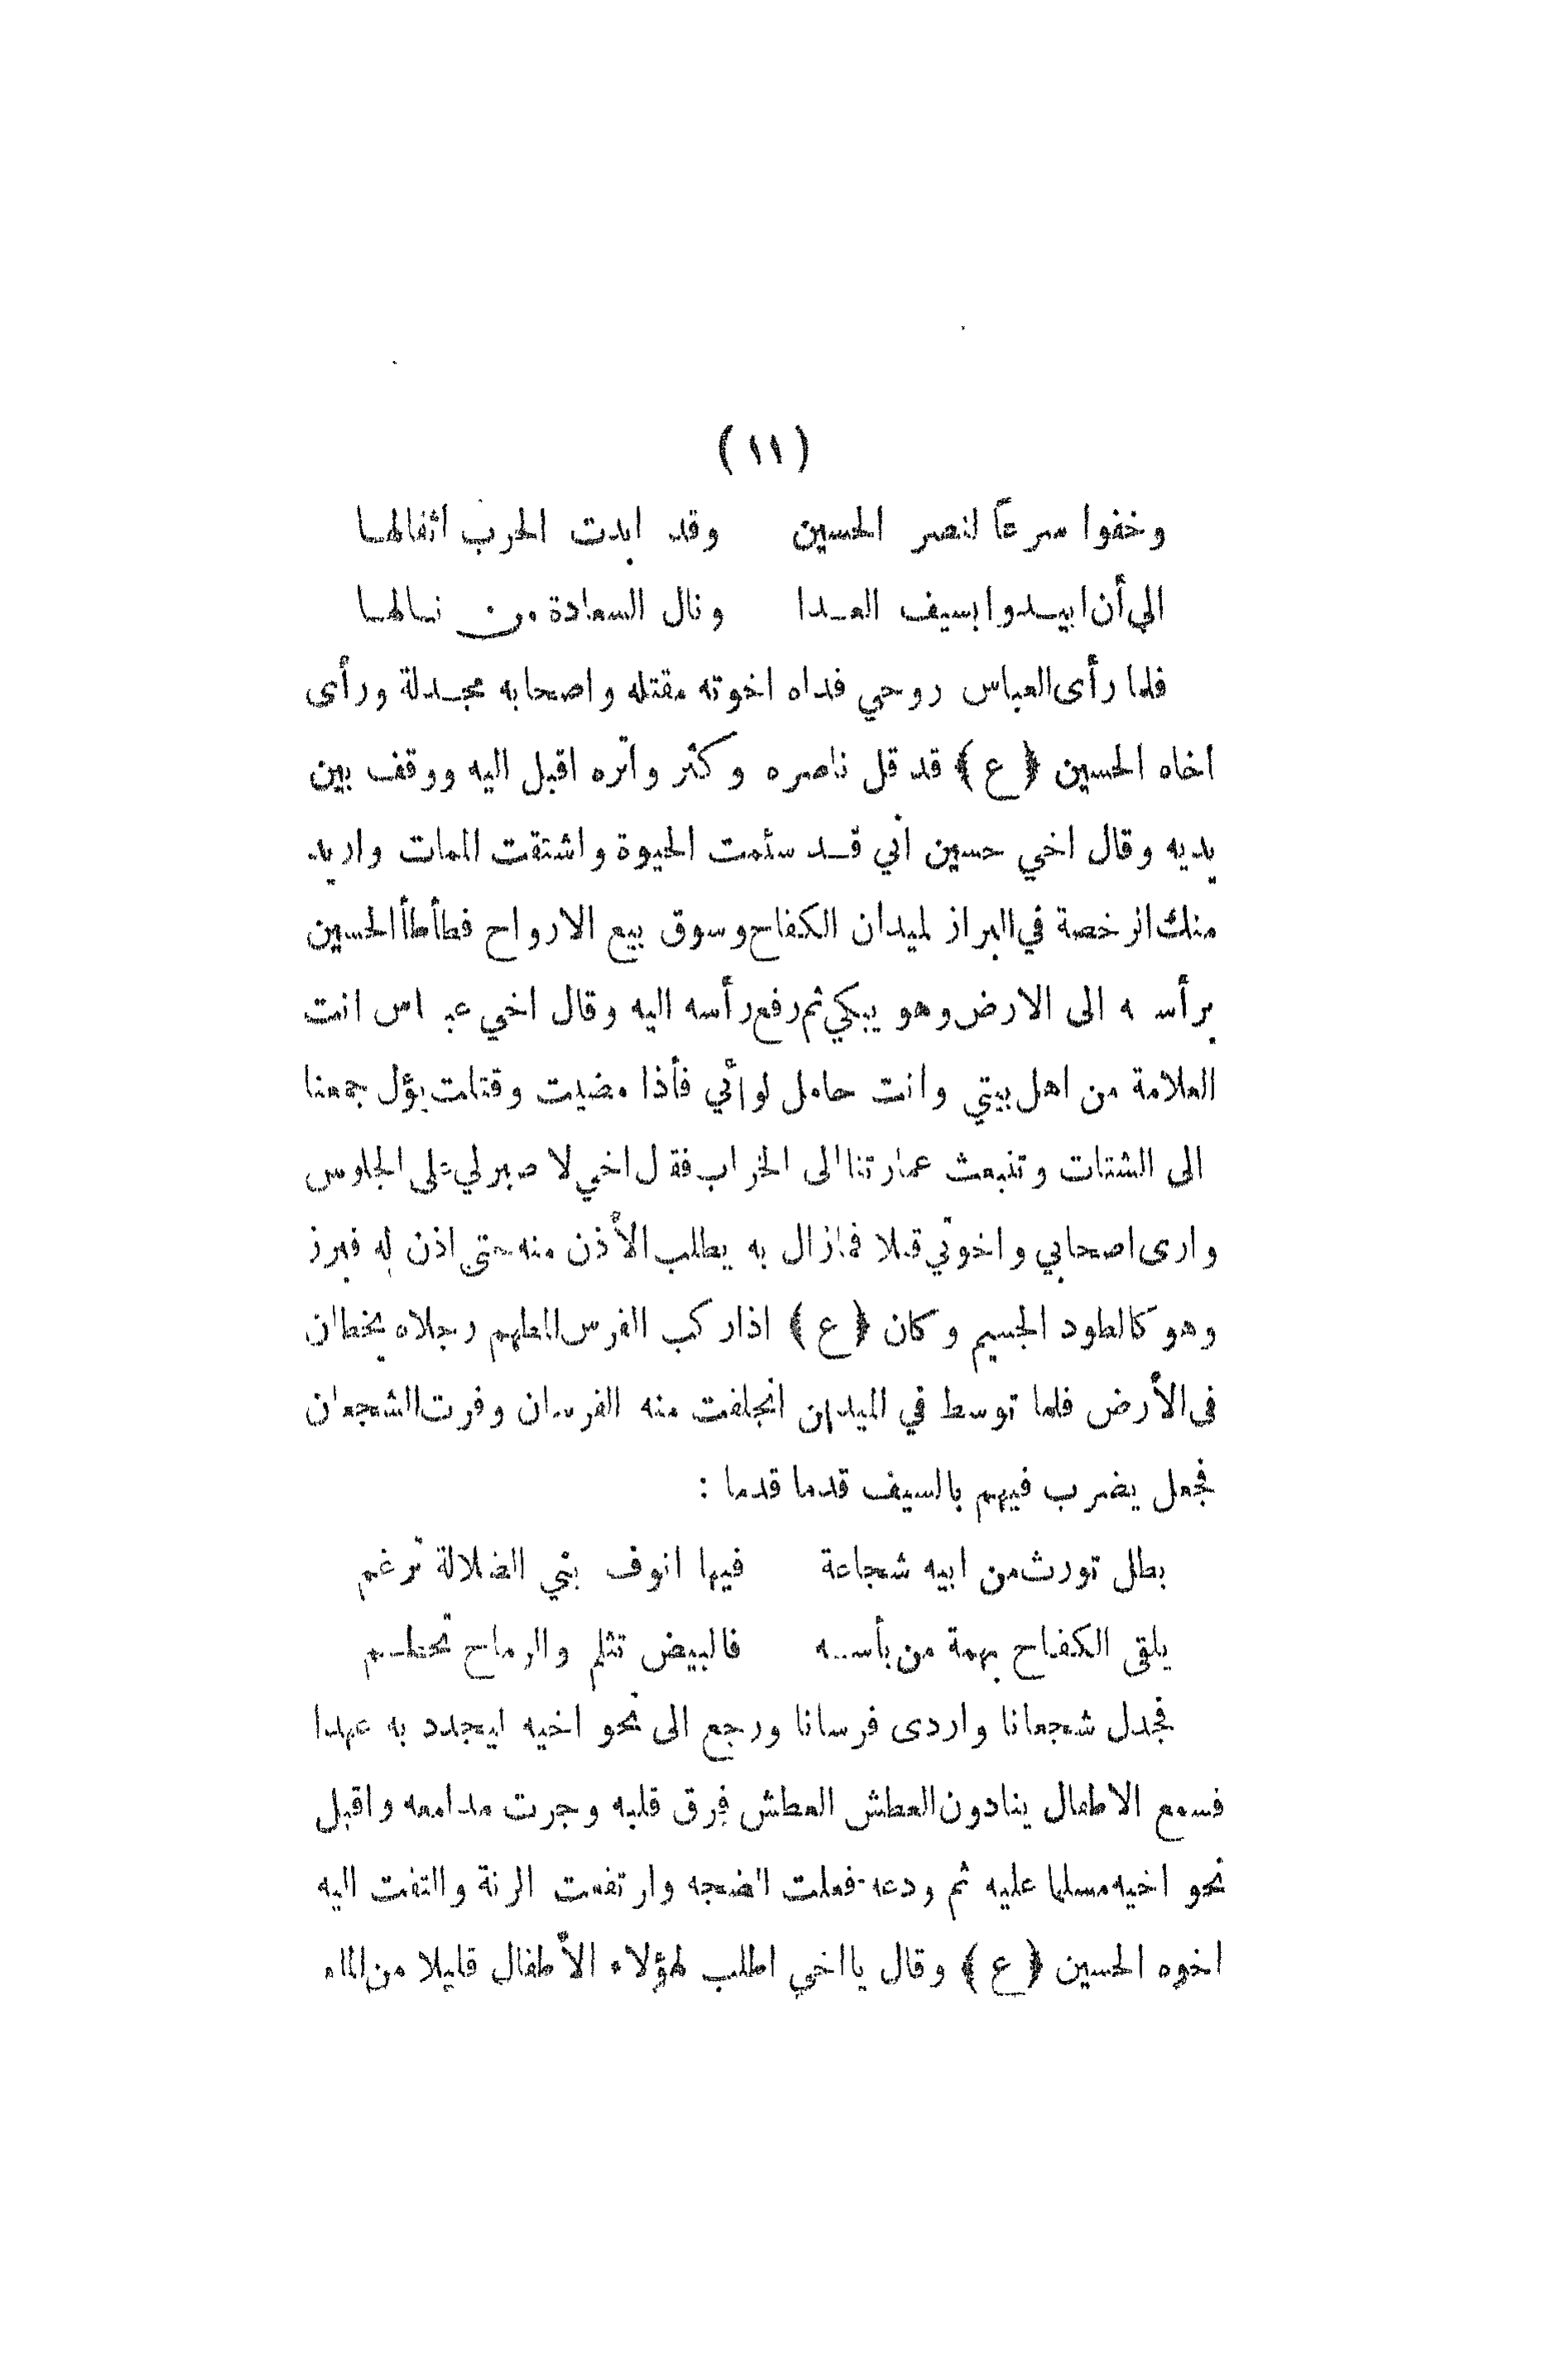 ( ١١ )
وخفوا سرعاً لنصر الحسين وقد ابدت الحرب اثقالها
الي أن ابيدوا بسيف العدا ونال السعادة من نالها
فلما رأى العباس روحي فداه اخوته مقتله واصحابه مجدلة ورأى
اخاه الحسين ﴿ ع ﴾ قد قل ناصره وكثر واتره اقبل اليه ووقف بين
يديه وقال اخي حسين أني قد سئمت الحيوة واشتقت الممات واريد
منك الرخصة في البراز لميدان الكفاح وسوق بيع الارواح فطأطأ الحسين
برأسه الى الارض وهو يبكي ثم رفع رأسه اليه وقال اخي عباس انت
العلامة من اهل بيتي وانت حامل لوائي فأذا مضيت وقتلت يؤل جمعنا
الى الشتات وتنبعث عمارتنا الى الخراب فقال اخي لا صبر لي على الجلوس
وارى اصحابي واخوتي قتلا فمازال به يطلب الأذن منه حتى اذن له فبرز
وهو كالطود الجسيم وكان ﴿ ع ﴾ اذا ركب الفرس المطهم رجلاه يخطان
في الأرض فلما توسط في الميدان انجلفت منه الفرسان وفرت الشجعان
فجعل يضرب فيهم بالسيف قدما قدما :
بطل تورث من ابيه شجاعة فيها انوف بني الضلالة ترغم
يلقى الكفاح بهمة من بأسه فالبيض تثلم والرماح تحطم
فجدل شجعانا واردى فرسانا ورجع الى نحو اخيه ليجدد به عهدا
فسمع الاطفال ينادون العطش العطش فرق قلبه وجرت مدامعه واقبل
نحو اخيه مسلما عليه ثم ودعه فعلت الضجه وارتفعت الرنة والتفت اليه
اخوه الحسين ﴿ ع ﴾ وقال يا اخي اطلب لهؤلاء الأطفال قليلا من الماء